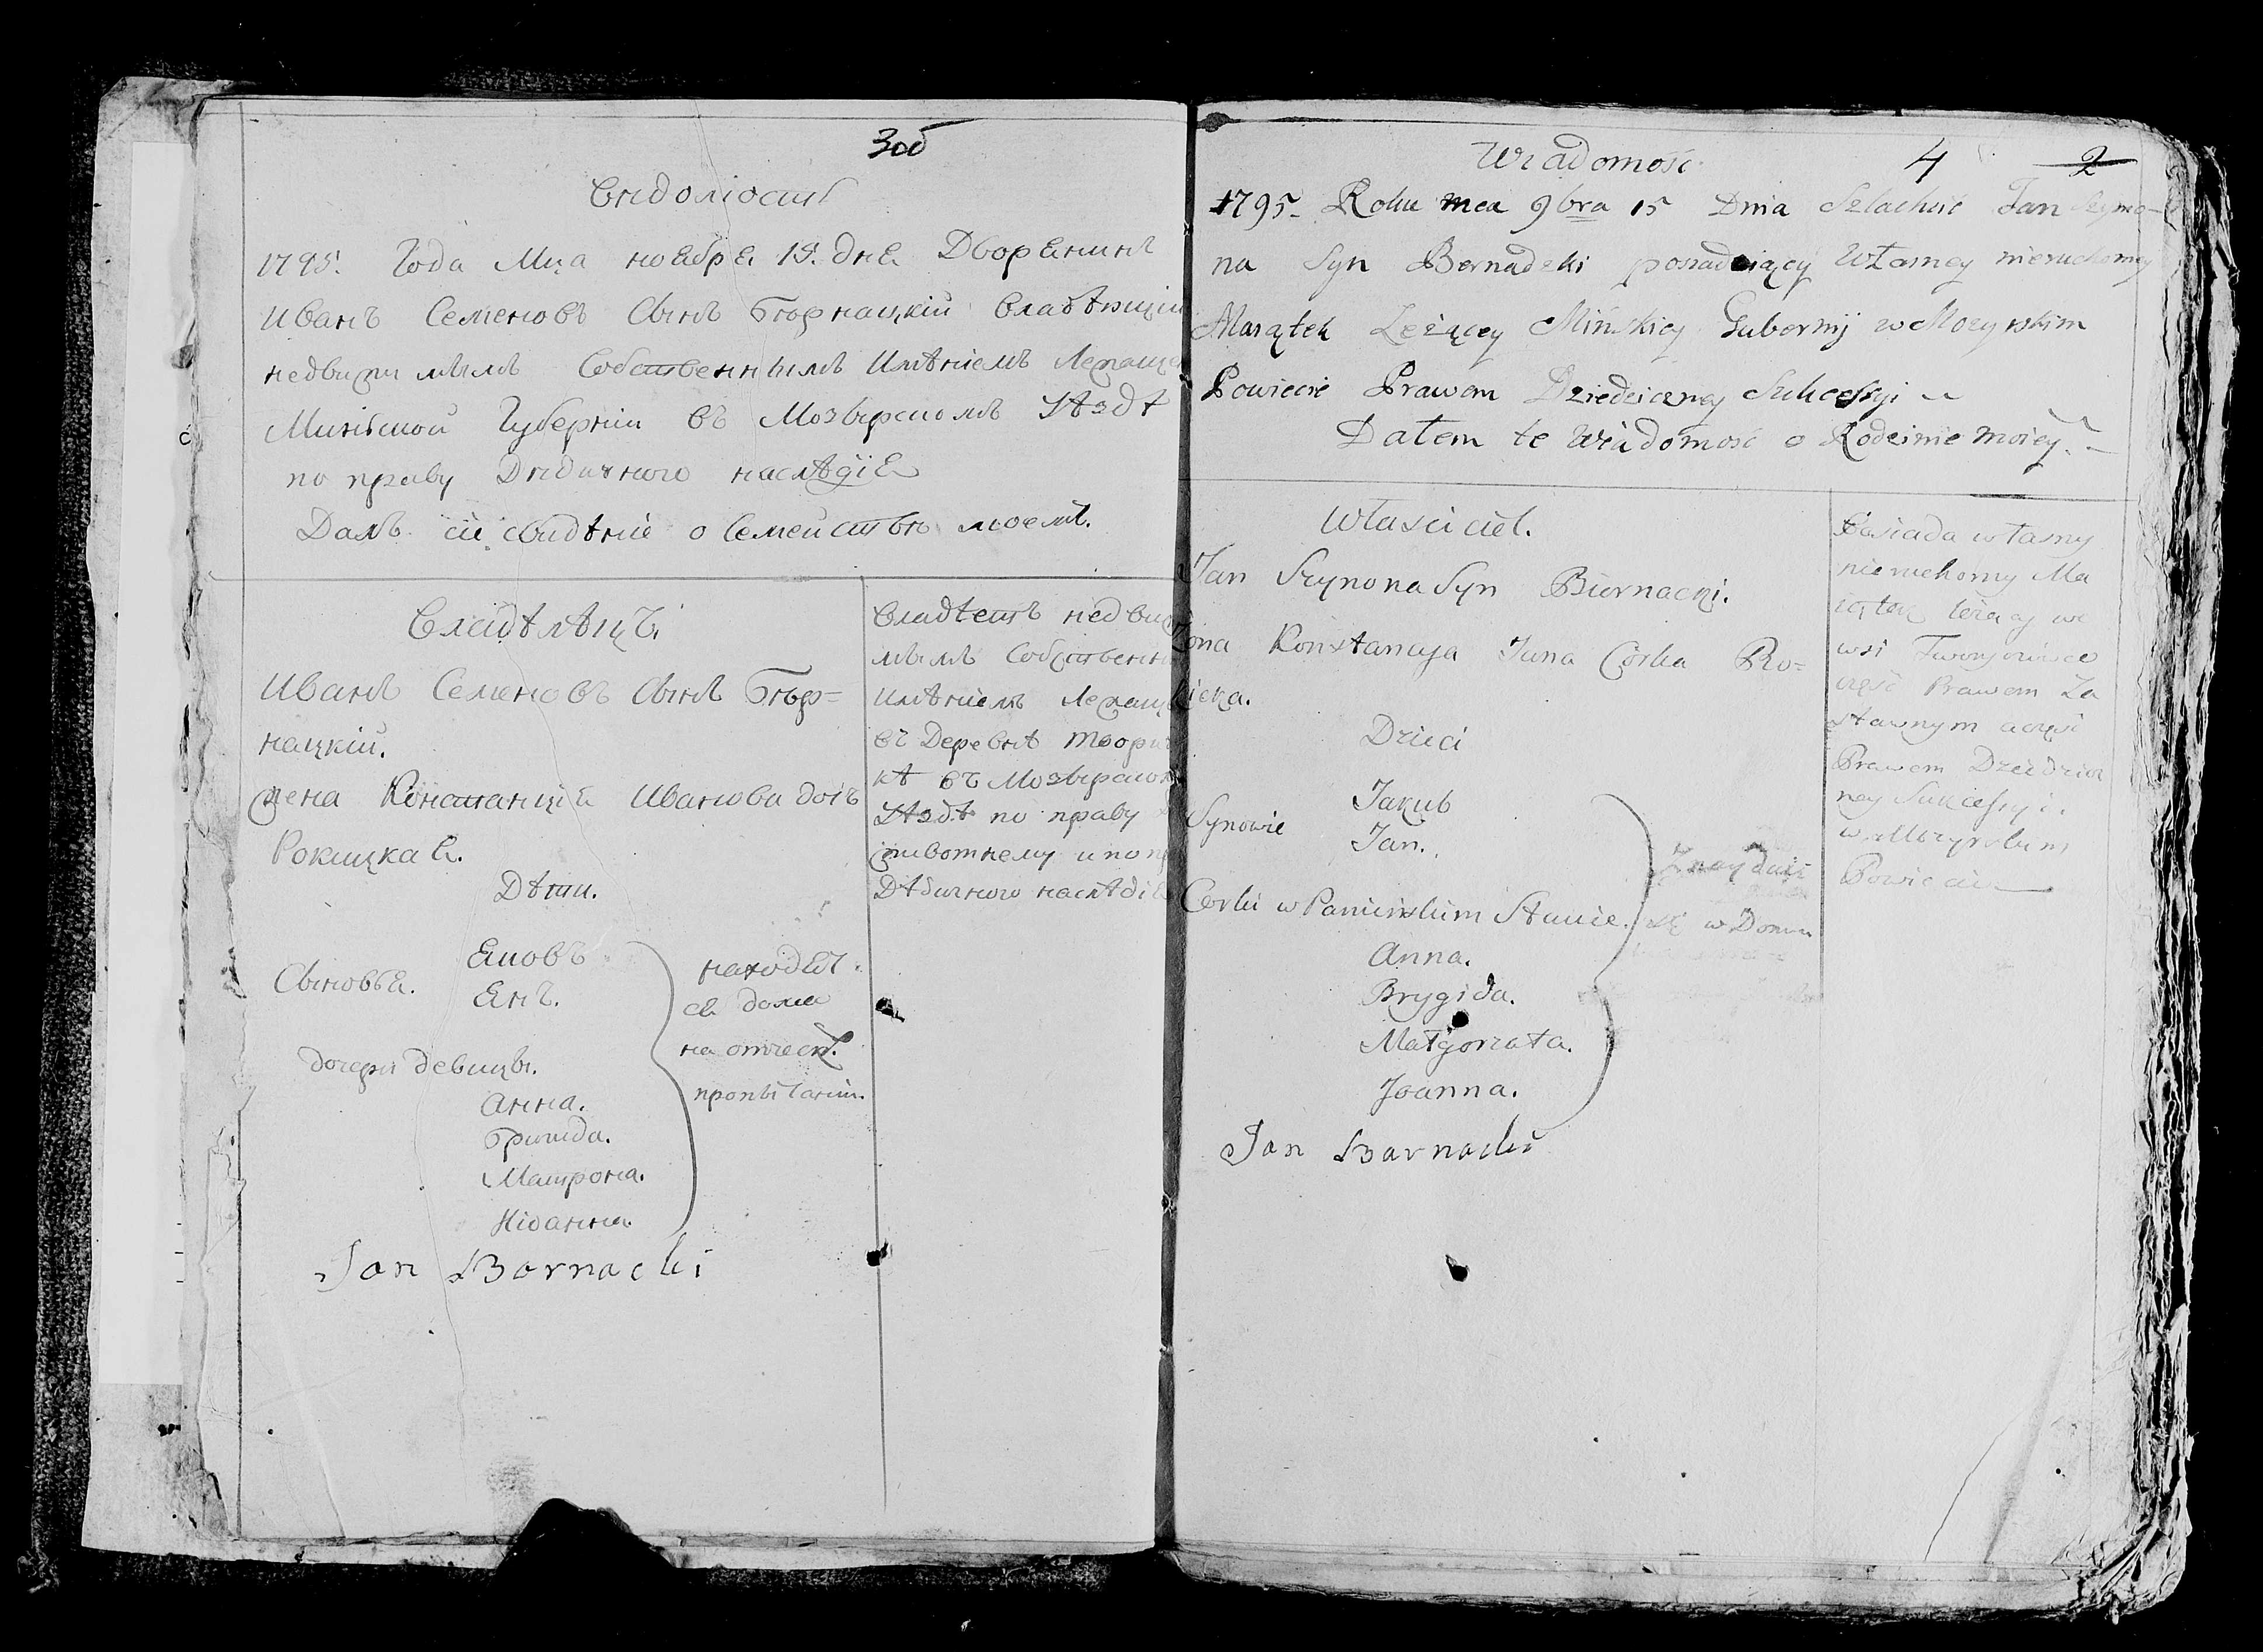 3об
Видомость
1795. Года Мца ноября 15. дня Дворянинъ
Иванъ Семеновъ Сынъ Бѣрнацкій Владѣющій
недвижимымъ Собственнымъ Имѣніемъ Лежаще
Минской Губерніи въ Мозырскомъ Уѣздѣ
по праву Дидичного наслѣдія
Далъ сіе свидѣніе о Семействѣ моемъ.
Владѣлѣцъ
Иванъ Семеновъ Сынъ Бѣр=
нацкій.
жена Констанція Иванова доч
Рокицкая.
Дѣти.
Сыновья.
Яковъ
Янъ.
дочери девицы.
Анна.
Бригида.
Матрона.
Іоанна.
находят
ся дома
на отческ.
пропитаніи.
Владѣетъ недвиж
мымъ Собственны
Имѣніемъ Лежащ
въ Деревнѣ Твори
кѣ въ Мозырском
Уѣздѣ по праву
животнему и по п
Дѣдичного наслѣдія
Jan Barnacki
4 2
Wiadomość
1795. Roku mca 9bra 15 Dnia Szlachcic Jan Szymo-
na Syn Bernadzki posiadaiący Własney nieruchomey
Maiątek Leżącey Mińskiey Gubernij w Mozyrskim
Powiecie Prawem Dziedziczney Sukcessyi
Dałem te Wiadomość o Rodzinie moiey.
Własciciel.
Jan Szymona Syn Biernacki.
Żona Konstancya Jana Corka Ro=
kicka.
Dzieci
Synowie
Jakub
Jan.
Corki w Panieńskim Stanie.
Anna.
Brygida.
Małgorzata.
Joanna.
Znayduią
się w Domu
Posiada własny
nieruchomy Ma
iątek leżący we
wsi
część Prawem Za
stawnym a część
Prawem Dziedzicz
ney Sukcessyi.
w Mozyrskim
Powiecie
Jan Barnacki